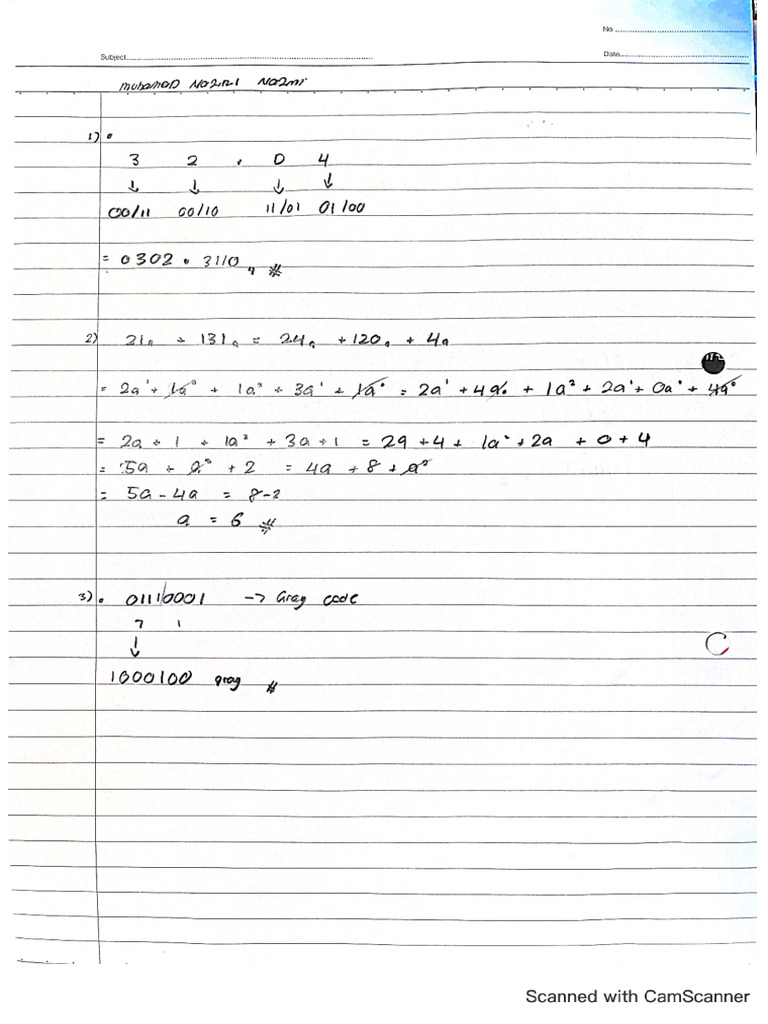 No.
Subject
Date
muhamad Nazrul Nazmi
1) •
3 2 . 0 4
↓ ↓ ↓ ↓
00/11 00/10 11/01 01/00
= 0302 . 3110₄ #
2) 21ₐ + 131ₐ = 24ₐ + 120ₐ + 4ₐ
= 2a¹ + 1a⁰ + 1a² + 3a¹ + 1a⁰ = 2a¹ + 4a⁰ + 1a² + 2a¹ + 0a⁰ + 4a⁰
= 2a + 1 + 1a² + 3a + 1 = 2a + 4 + 1a² + 2a + 0 + 4
= 5a + a² + 2 = 4a + 8 + a²
= 5a - 4a = 8-2
a = 6 #
3) • 0111/0001 -> Gray code
7 1
↓
1000100 gray #
Scanned with CamScanner